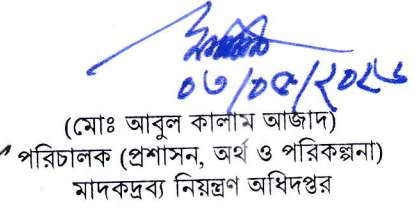 ০৩/০৫/২০২৬
(মোঃ আবুল কালাম আজাদ)
পরিচালক (প্রশাসন, অর্থ ও পরিকল্পনা)
মাদকদ্রব্য নিয়ন্ত্রণ অধিদপ্তর